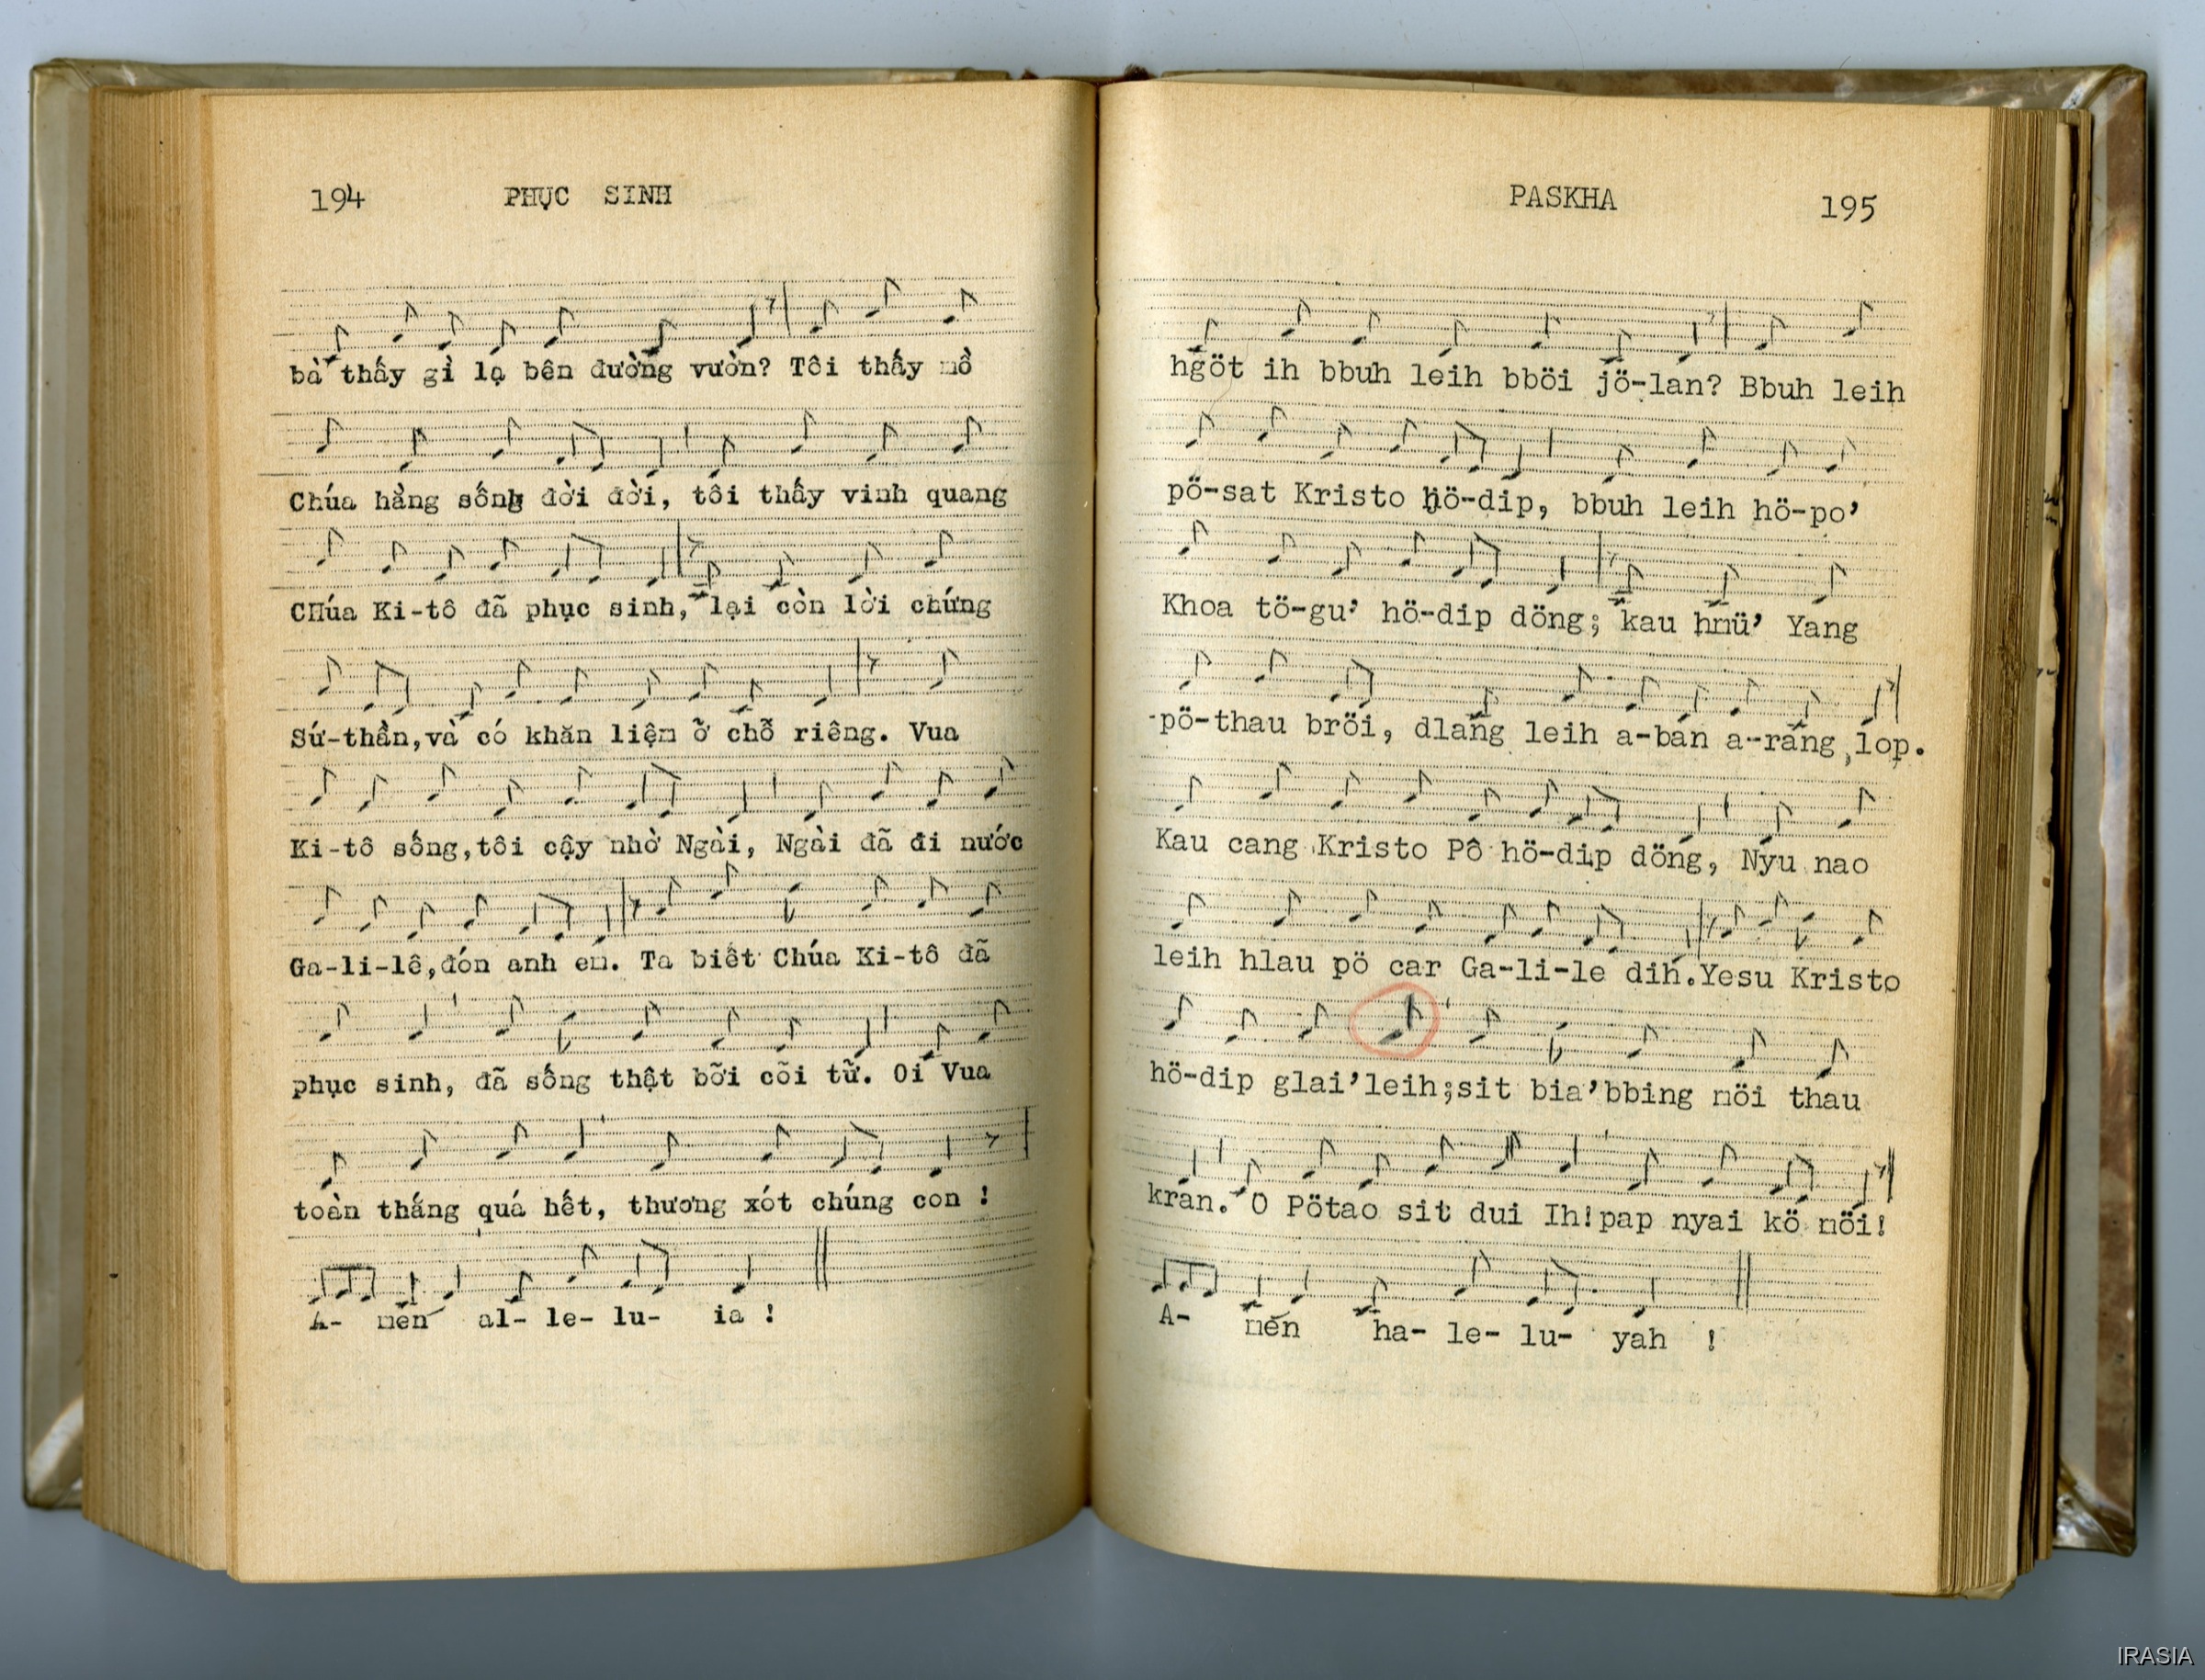 194 PHỤC SINH
bà thấy gì lạ bên đường vườn? Tôi thấy mồ
Chúa hằng sống đời đời, tôi thấy vinh quang
CHúa Ki-tô đã phục sinh, lại còn lời chứng
Sứ-thần,và có khăn liệm ở chỗ riêng. Vua
Ki-tô sống,tôi cậy nhờ Ngài, Ngài đã đi nước
Ga-li-lê,đón anh em. Ta biết Chúa Ki-tô đã
phục sinh, đã sống thật bỡi cõi tữ. Oi Vua
toàn thắng quá hết, thương xót chúng con !
A- mên al- le- lu- ia !
PASKHA 195
hgöt ih bbuh leih bböi jö-lan? Bbuh leih
pö-sat Kristo hö-dip, bbuh leih hö-po'
Khoa tö-gu' hö-dip döng; kau hmü' Yang
pö-thau bröi, dlang leih a-bán a-răng lop.
Kau cang Kristo Pô hö-dip döng, Nyu nao
leih hlau pö car Ga-li-le dih.Yesu Kristo
hö-dip glai'leih;sit bia'bbing möi thau
kran. O Pötao sit dui Ih!pap nyai kö möi!
A- mĕn ha- le- lu- yah !
IRASIA